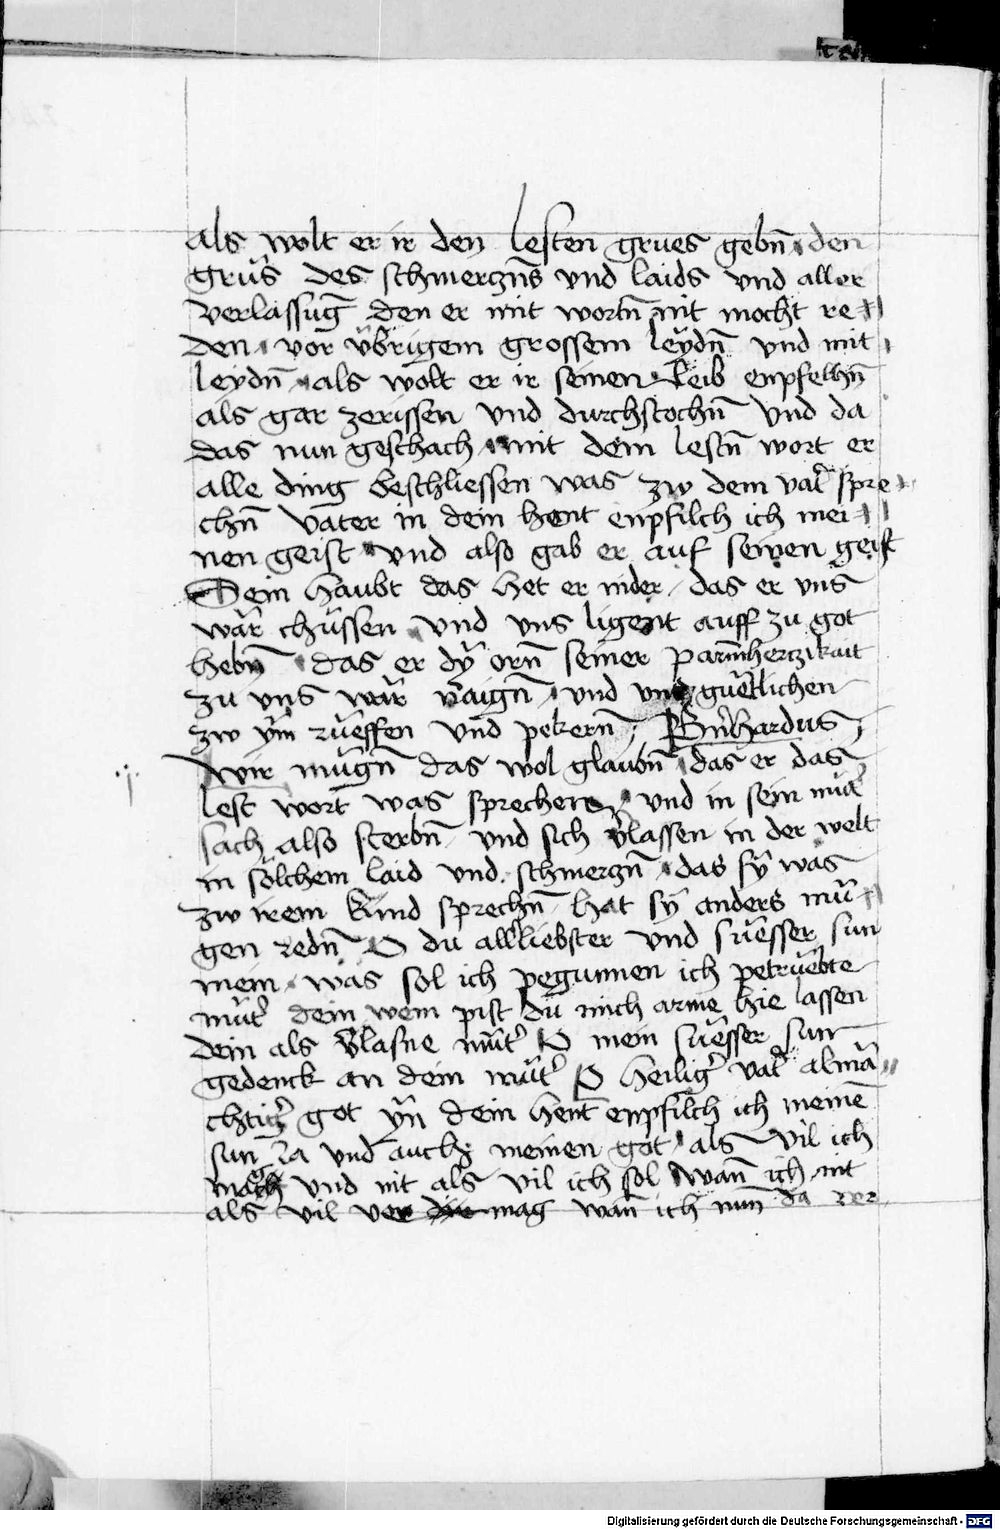 als wolt er ir den lesten grues gebn̄ den
grüs des schmerczn̄s vnd laids vnd aller
verlassūg den er mit wortn̄ nit mocht re=
den vor v̈brigem grossem leÿdn̄ vnd mit
leydn̄ als wolt er ir seinen leib enpfelhn̄
als gar zerissen vnd durchstochn̄ vnd da
das nun geschach mit dem lestn̄ wort er
alle ding beschliessen was zw dem vat̉ spre=
chn̄ vater in dein hent enpfilch ich mei=
nen geist vnd also gab er auf seinen geist
Sein haubt das het er nider das er vns
wär chüssen vnd vns ligent auff zu got
hebn̄ das er dÿ orn̄ seiner parm̄herczikait
zu vns wär naign̄ vnd vns güetlichen
zw ÿm rüeffen vnd pekern̄ Bn̉hardus
Wir mügn̄ das wol glaubn̄ das er das
lest wort was sprechen vnd in sein müt̉
sach also sterbn̄ vnd sich v̉lassen in der welt
in sölchem laid vnd schmerczn̄ das sÿ was
zw irem kind sprechn̄ hat sÿ anders mü=
gen redn̄ O du allliebster vnd süesser sun
mein was sol ich pegunnen ich petrüebte
müt̉ dein wem pist du mich arme hie lassen
dein als v̉lasne müt̉ O mein süesser sun
gedenck an dein müt̉ O heilig̉ vat̉ almä=
chtig̉ got ÿn dein hent enpfilch ich meinē
sun ia vnd auch meinen got als vil ich
mach vnd nit als vil ich sol wan̄ ich nit
als vil mag wan̄ ich nun da ver
Digitalisierung gefördert durch die Deutsche Forschungsgemeinschaft - DFG